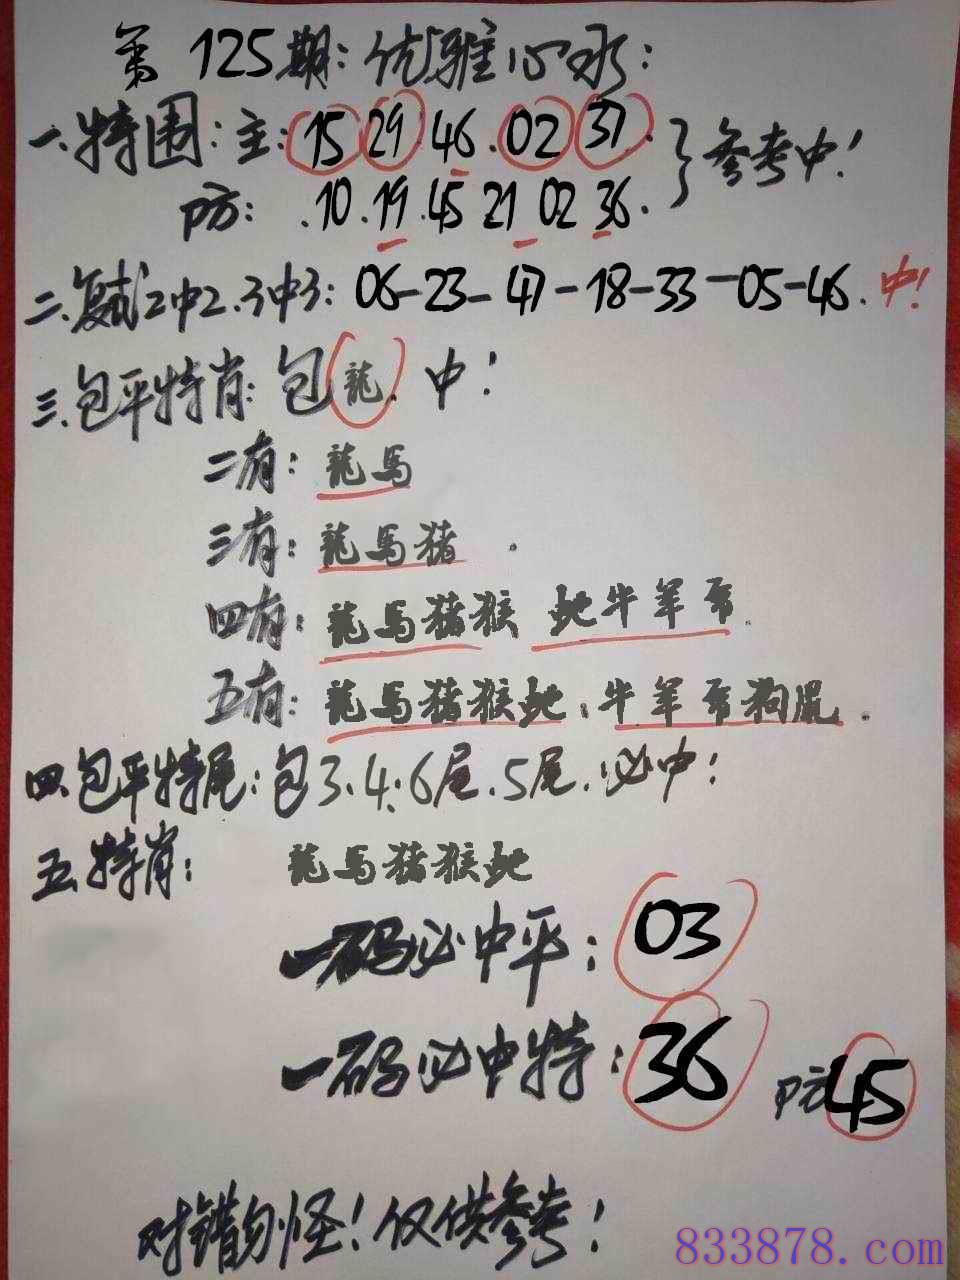 第125期:优雅心水:
一.特围:主:15 29.46.02 37.}参考中!
防:.10.19.45 21 02 36.
二.复式2中2.3中3:06-23-47-18-33-05-46.中!
三.包平特肖:包龍.中!
二有:龍馬
三有:龍馬猪.
四有:龍馬猪猴 蛇牛羊
五有:龍馬猪猴蛇:牛羊 狗鼠.
四.包平特尾:包3.4.6尾.5尾.必中!
五.特肖:龍馬猪猴蛇
一码必中平:03
一码必中特:36 防45
对错勿怪!仅供参考!
833878.com